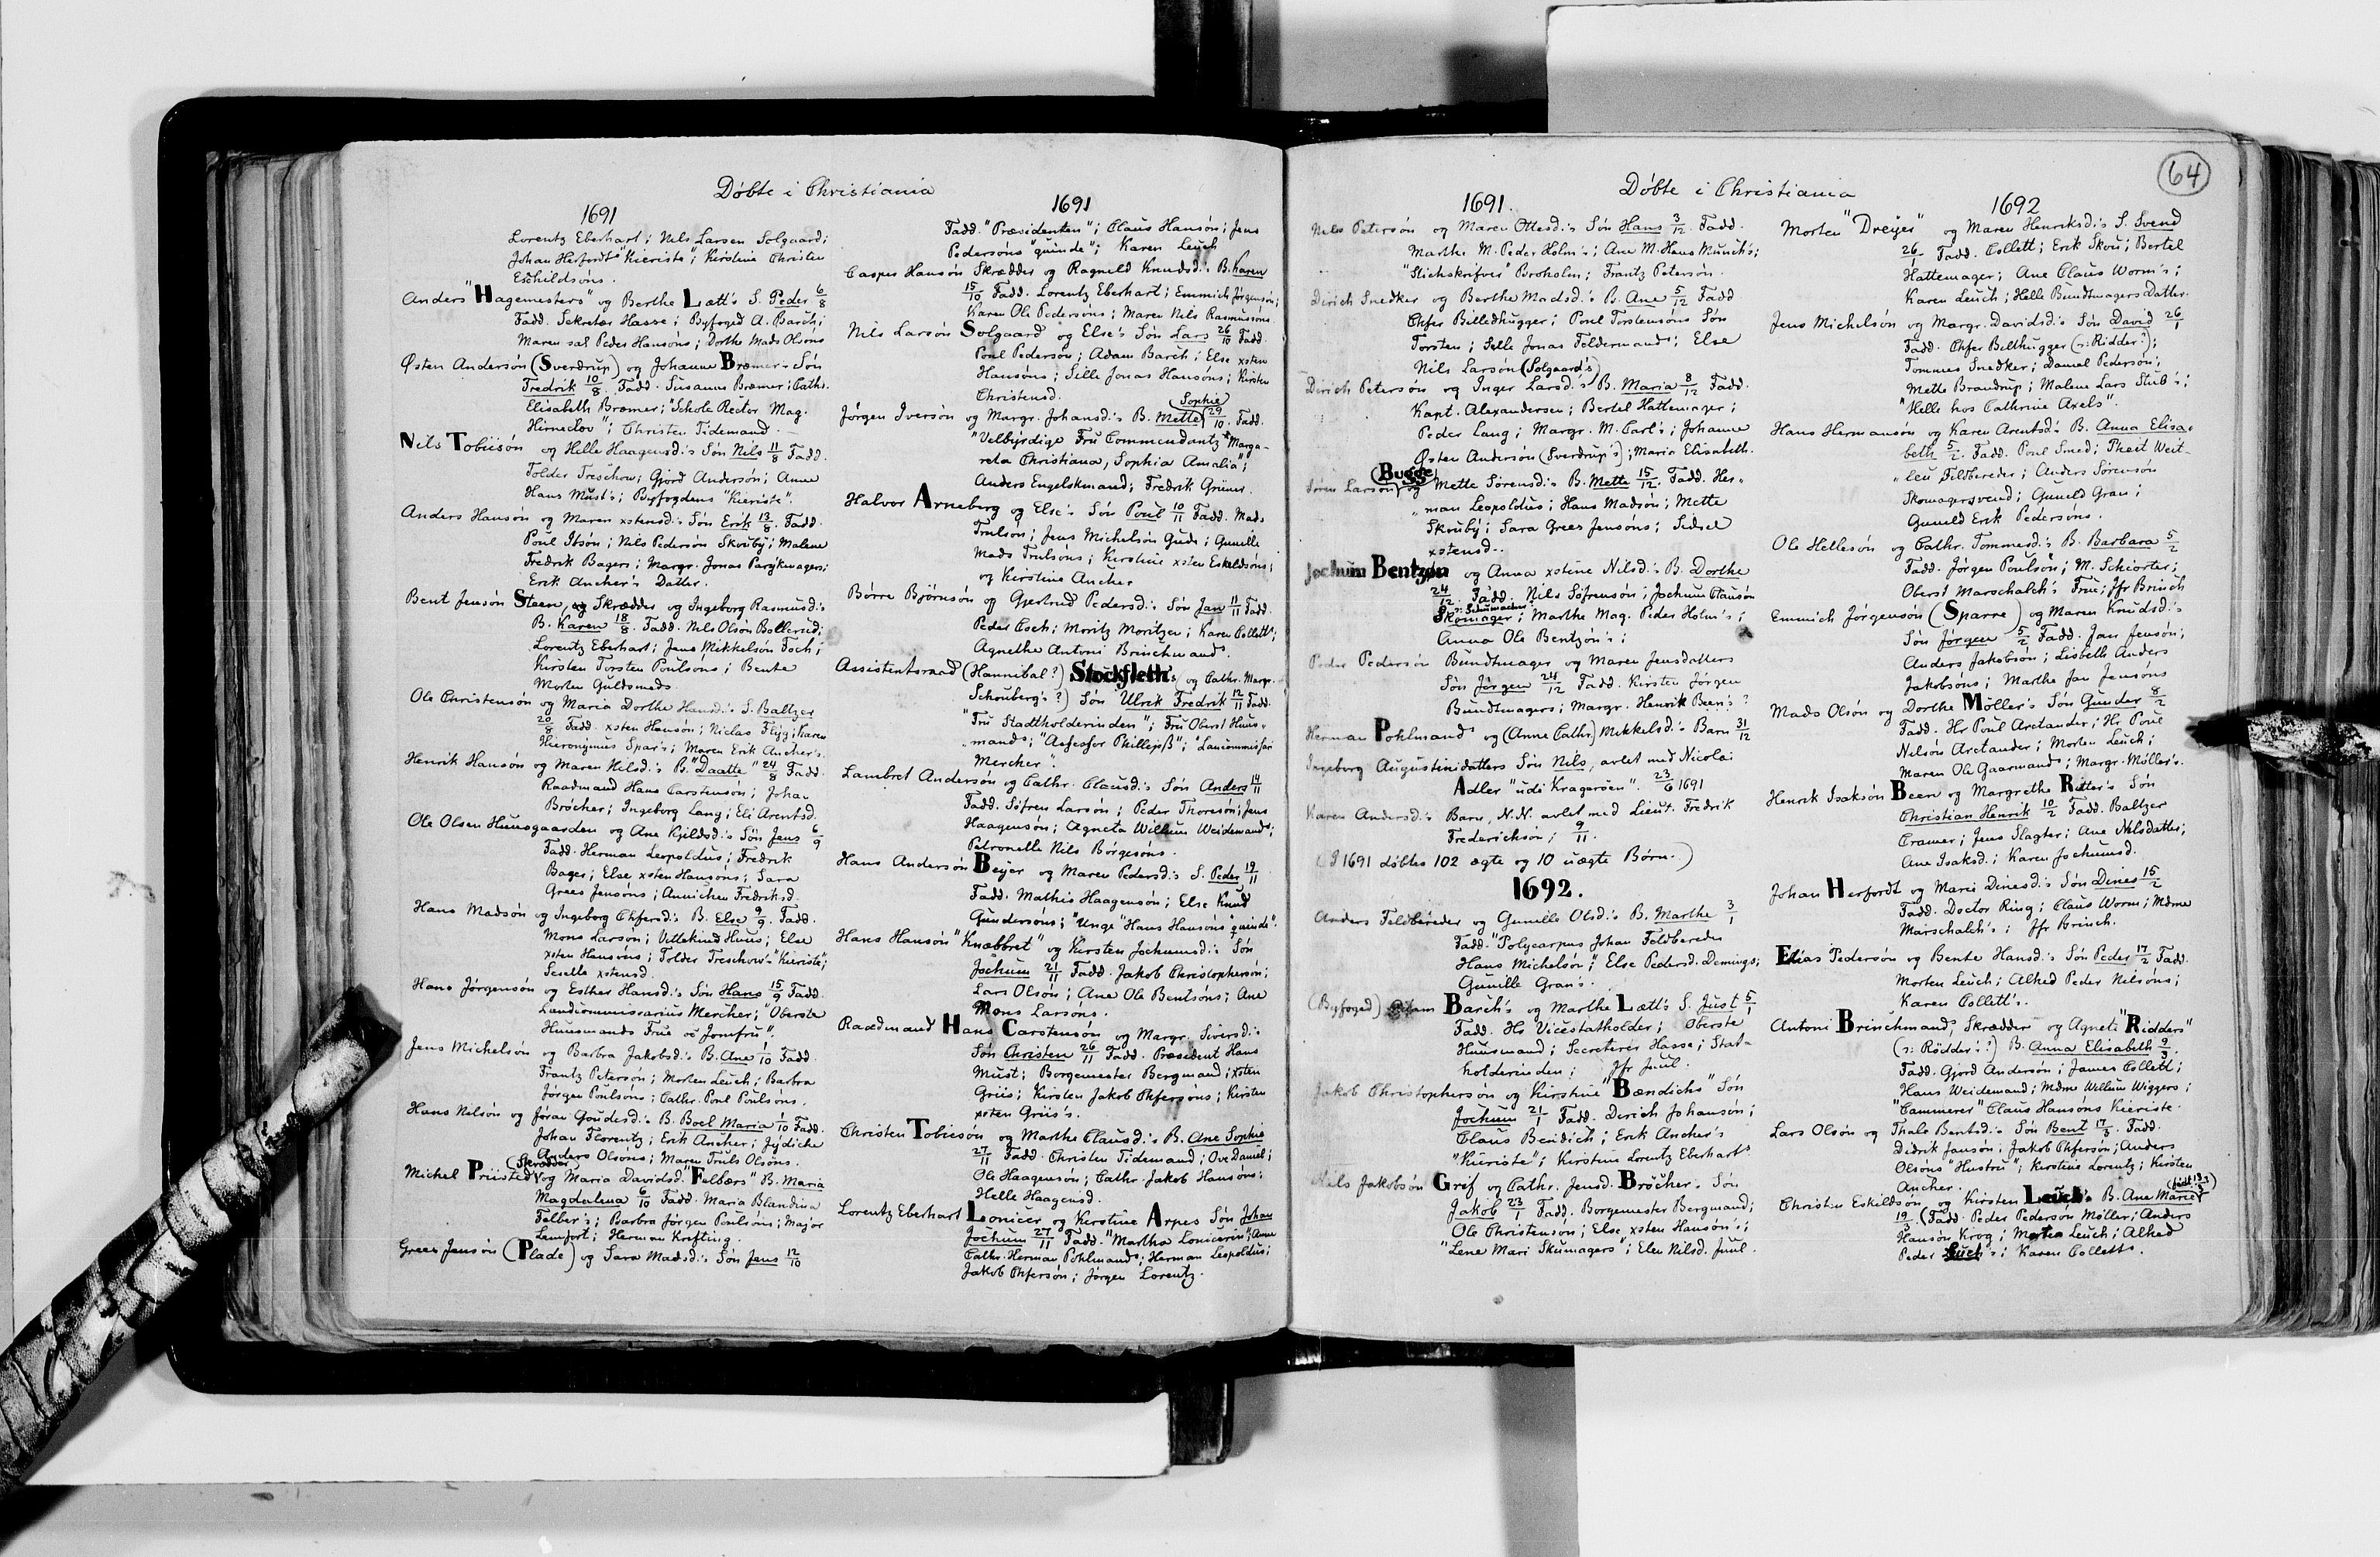 Døbte i Christiania
1691
Lorentz Eberhart; Nels Larsen Solgaard;
Johan Herfordt "Kieriste"; Kirstine Christen
Eschildsøns.
Anders "Hagemesters" og Berthe Lætt's S. Peder 6/8
Fadd. Sekretær Hasse; Byfoged A. Barch;
Maren sal Peder Hansøns; Dorthe Mads Olsøns
Østen Andersøn (Sverdrup) og Johanne Bræmers Søn
Fredrik 10/8. Fadd. Susanne Bræmer; Cathr.
Elisabeth Bræmer; "Schole Rector Mag.
Hirneclov"; Christen Tidemand.
Nils Tobiisøn og Helle Haagensd.'s Søn Nils 11/8 Fadd.
Tolder Treschow; Gjord Andersøn; Anne
Hans Must's; Byfogdens "Kieriste".
Anders Hansøn og Maren xstensd.'s Søn Erik 13/8. Fadd.
Poul Ibsøn; Nils Pedersøn Skruby; Malene
Fredrik Bagers; Margr. Jonas Parykmagers;
Erik Ancher's Datter.
Bent Jensøn Steen, Skrædder og Ingeborg Rasmusd.'s
B. Karen 18/8. Fadd. Nils Olsøn Bollerud;
Lorentz Eberhart; Jens Mikkelsøn Foch;
Kirsten Torsten Poulsøns; Bente
Morten Guldsmeds
Ole Christensøn og Maria Dorthe Hansd.'s S. Baltzer
20/8 Fadd. xsten Hansøn; Niclas Flyg; Karen
Hieronymus Spar's; Maren Erik Ancher's.
Henrik Hansøn og Maren Nilsd.'s B. "Daatte" 24/8 Fadd.
Raadmand Hans Carstensøn; Johan
Brøcher; Ingeborg Lang; Eli Arentsd.
Ole Olsen Huusgaarden og Ane Kjeldsd.'s Søn Jens 6/9
Fadd. Herman Leopoldus; Fredrik
Bager; Else xsten Hansøns; Sara
Grees Jensøns; Annichen Fredriksd.
Hans Madsøn og Ingeborg Chfersd.'s B. Else 9/9. Fadd.
Mons Larsøn; Vittekind Huus; Else
xsten Hansøns; Tolder Treschow's "Kieriste";
Seselle xstensd.
Hans Jørgensøn og Esther Hansd.'s Søn Hans 15/9 Fadd.
Landcommissarius Mercher; "Oberste
Huusmands Frue oc Jomfru".
Jens Michelsøn og Barbra Jakobsd.'s B. Ane 1/10 Fadd.
Frantz Petersøn; Morten Leuch; Barbra
Jørgen Poulsøns; Cathr. Poul Poulsøns.
Hans Nilsøn og Jøran Goudesd.'s B. Boel Maria 1/10 Fadd.
Johan Florentz; Erik Ancher; Jydiche
Anders Olsøns; Maren Truls Olsøns.
(Skrædder)
Michel Priisted og Maria Davidsd. "Felbærs" B. Maria
Magdalena 6/10 Fadd. Maria Blandina
Felber's; Barbra Jørgen Poulsøns; Major
Lemfort; Herman Krefting.
Grees Jensøn (Plade) og Sara Madsd.'s Søn Jens 12/10
1691
Fadd. "Præsidenten"; Claus Hansøn; Jens
Pedersøns "quinde"; Karen Leuch
Casper Hansøn Skrædder og Ragneld Knudsd.'s B. Karen
15/10 Fadd. Lorentz Eberhart; Emmich Jørgensøn;
Karen Ole Pedersøns; Maren Nils Rasmussøns
Nils Larsøn Solgaard og Else's Søn Lars 26/10 Fadd.
Poul Pedersøn; Adam Barch; Else xsten
Hansøns; Sille Jonas Hansøns; Kirsten
Christensd.
Sophie
Jørgen Iversøn og Margr. Johansd.'s B. Mette 29/10. Fadd.
"Velbyrdige Fru Commendantz "Marga-
reta Christiana, Sophia Amalia";
Anders Engelskmand; Fredrik Grüner.
Halvor Arneberg og Else's Søn Poul 10/11 Fadd. Mads
Trulsøn; Jens Michelsøn Gude; Gunille
Mads Trulsøns; Kirstine xsten Eskeldsøns;
og Kirstine Ancher
Børre Bjørnsøn og Gjertrud Pedersd.'s Søn Jan 11/11 Fadd.
Peder Esch; Moritz Moritzen; Karen Collett's;
Agnethe Antoni Brinchmands.
Assistentsraad (Hannibal?) Stockfleth's og Cathr. Margr.
Schouberg's?) Søn Ulrik Fredrik 12/11 Fadd.
"Fru Stadtholderinden"; Fru Oberst Huus-
mands; "Assessor Phillipsß"; "Lancommissær
Mercher".
Lambret Andersøn og Cathr. Clausd.'s Søn Anders 14/11
Fadd. Søfren Larsøn; Peder Thoresøn; Jens
Haagensøn; Agneta Willum Weidemands;
Petronelle Nils Børgesøns.
Hans Andersøn Beyer og Maren Pedersd.'s S. Peder 19/11
Fadd. Mathis Haagensøn; Else Knud
Gundersøns; "Unge" Hans Hansøns "quinde".
Hans Hansøn "Knæbbret" og Kirsten Jochumsd.'s Søn
Jochum 21/11 Fadd. Jakob Christophersøn;
Lars Olsøn; Ane Ole Bentsøns; Ane
Mons Larsøns.
Raadmand Hans Carstensøn og Margr. Siversd.'s
Søn Christen 26/11 Fadd. Præsident Hans
Must; Borgemester Bergmand; xsten
Griis; Kirsten Jakob Chfersøns; Kirsten
xsten Griis's.
Christen Tobiesøn og Marthe Clausd.'s B. Ane Sophie
27/11 Fadd. Christen Tidemand; Ove Daniel;
Ole Haagensøn; Cathr. Jakob Hansøns;
Helle Haagensd.
Lorentz Eberhart Lonicer og Kirstine Arpes Søn Johan
Jochum 27/11 Fadd. "Martha Lonicerin"; Anne
Cathr. Herman Pohlmands; Herman Leopoldus;
Jakob Chfersøn; Jørgen Lorentz.
64
Døbte i Christiania
1691.
Nels Petersøn og Maren Ottesd.'s Søn Hans 3/12. Fadd.
Marthe M. Peder Holm's; Ane M. Hans Munch's;
"Slichskrifver" Boroholm; Frantz Petersøn.
Dirich Snedker og Berthe Madsd.'s B. Ane 5/12 Fadd
Chfer Billedhugger; Poul Torstensøns Søn
Torsten; Sille Jonas Feldermands; Else
Nils Larsøn (Solgaard's)
Dirich Petersøn og Inger Larsd.'s B. Maria 8/12 Fadd.
Kapt. Alexandersen; Bertel Hattemager;
Peder Lang; Margr. M. Carl's; Johanne
Østen Andersøn (Sverdrup's); Maria Elisabeth.
(Bugge)
Søren Larsøn og Mette Sørensd.'s B. Mette 15/12. Fadd. Her-
man Leopoldus; Hans Madsøn; Mette
Skruby; Sara Grees Jensøns; Sidsel
xstensd..
Jochum Bentzøn og Anna xstine Nilsd.'s B. Dorthe
24/12. Fadd. Nils Søfrensøn; Jochum Clausøn
Skomager; Marthe Mag. Peder Holm's;
Anna Ole Bentzøn's;
Peder Pedersøn Bundtmager og Maren Jensdatters
Søn Jørgen 24/12 Fadd. Kirsten Jørgen
Bundtmagers; Margr. Henrik Been's?
Herman Pohlmands og (Anne Cathr.) Mikkelsd.'s Barn 31/12
Ingeborg Augustinidatters Søn Nils, avlet med Nicolai
Adler "udi Kragerøen". 23/6 1691
Karen Andersd.'s Barn, N.N. avlet med Lieut. Fredrik
Frederichsøn; 9/11.
(I 1691 døbtes 102 ægte og 10 uægte Børn.)
1692.
Anders Feldbereder og Gunille Olsd.'s B. Marthe 3/1
Fadd. "Polycarpus Johan Feldbereder
Hans Michelsøn"; Else Pedersd. Demings;
Gunille Gran's.
(Byfoged) Adam Barch's og Marthe Lætt's S. Just 5/1
Fadd. Hr Vicestatholder; Oberste
Huusmand; Secreterer Hasse; Stat-
holderinden; Jfr Juul.
Jakob Christophersøn og Kirstine "Bændichs" Søn
Jochum 21/1 Fadd. Dirich Johansøn;
Claus Bendich; Erik Ancher's
"Kieriste"; Kirstine Lorentz Eberharts
Nils Jakobsøn Gref og Cathr. Jensd. Brøcher's Søn
Jakob 23/1 Fadd. Borgemester Bergmand;
Ole Christensøn; Else xsten Hansøn's;
"Lene Mari Skumagers"; Elen Nilsd. Juul.
1692
Morten "Dreyer" og Maren Henriksd.'s S. Svend
26/1 Fadd. Collett; Erik Skou; Bertel
Hattemager; Ane Claus Worm's;
Karen Leuch; Helle Bundtmagers Datter.
Jens Michelsøn og Margr. Davidsd.'s Søn David 26/1
Fadd. Chfer Bellhugger (ɔ: Ridder?);
Tommes Snedker; Daniel Pedersøn;
Mette Brandrup; Malene Lars Stub's;
"Helle hos Cathrine Axels".
Hans Hermansøn og Karen Arentsd.'s B. Anna Elisa-
beth 5/2. Fadd. Poul Smed; Theit Weit-
leu Feldbereder; Anders Sørensøn
Skomagersvend; Guneld Gran;
Guneld Erik Pedersøns.
Ole Hellesøn og Cathr. Tommesd.'s B. Barbara 5/2
Fadd. Jørgen Poulsøn; M. Schiorter;
Oberst Marschalch's Frue; Jfr Brinch
Emmich Jørgensøn (Sparre) og Maren Knudsd.'s
Søn Jørgen 5/2 Fadd. Jan Jensøn;
Anders Jakobsøn; Lisbeth Anders
Jakobsøns; Marthe Jan Jensøns
Mads Olsøn og Dorthe Møller's Søn Gunder 8/2
Fadd. Hr Poul Arctander; Hr. Poul
Nilsøn Arctander; Morten Leuch;
Maren Ole Gaarmands; Margr. Møller's.
Henrik Isaksøn Been og Margrethe Ritter's Søn
Christian Henrik 10/2 Fadd. Baltzer
Cramer; Jens Slagter; Ane Nilsdatter;
Ane Isaksd.; Karen Jochumsd.
Johan Herfordt og Mari Dinesd.'s Søn Dines 15/2
Fadd. Doctor Ring; Claus Worm; Mdme
Marschalch's; Jfr Brinch.
Elias Pedersøn og Bente Hansd.'s Søn Peder 17/2 Fadd.
Morten Leuch; Alhed Peder Nilsøns;
Karen Collett's.
Antoni Brinchmand, Skrædder og Agneti "Ridders"
(ɔ: Rödder's?) B. Anna Elisabeth 9/3.
Fadd. Gjord Andersøn; James Collett;
Hans Weidemand; Mdme Willum Wiggers;
"Cammerer" Claus Hansøns Kieriste.
Lars Olsøn og Thale Bentsd.'s Søn Bent 17/3. Fadd.
Didrik Jansøn; Jakob Chfersøn; Anders
Olsøns "Hustru"; Kirstine Lorentz; Kirsten
Ancher.
Christen Eskildsøn og Kirsten Leuch's B. Ane Marie
19/3 (Fadd. Peder Pedersøn Møller; Anders
Hansøn Krog; Morten Leuch; Alhed
Peder Leuch's; Karen Colletts.